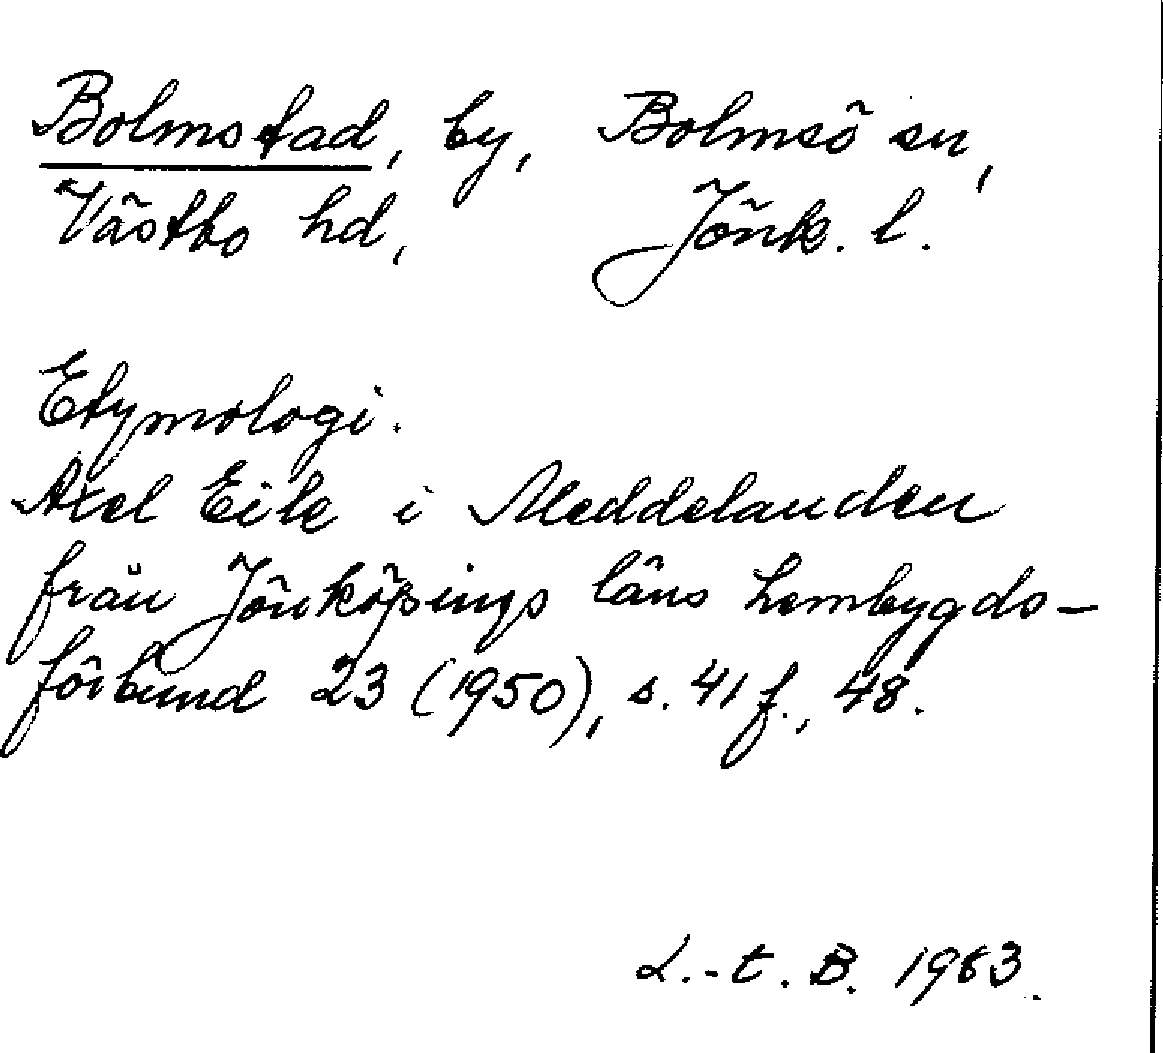 Bolmstad, by, Bolmsö sn,
Västbo hd, Jönk. l.
Etymologi.
Axel Eile i Meddelanden
från Jönköpings läns hembygds-
förbund 23 (1950), s. 41 f., 48.
L.-t. B. 1963.